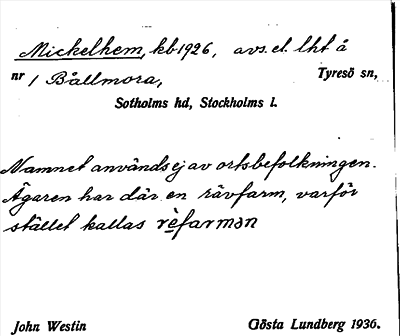 Mickelhem, kb 1926, avs. el. lht å
nr 1 Bållmora, Tyresö sn,
Sotholms hd, Stockholms l.
Namnet används ej av ortsbefolkningen.
Ägaren har där en rävfarm, varför
stället kallas rèfarmən
John Westin Gösta Lundberg 1936.